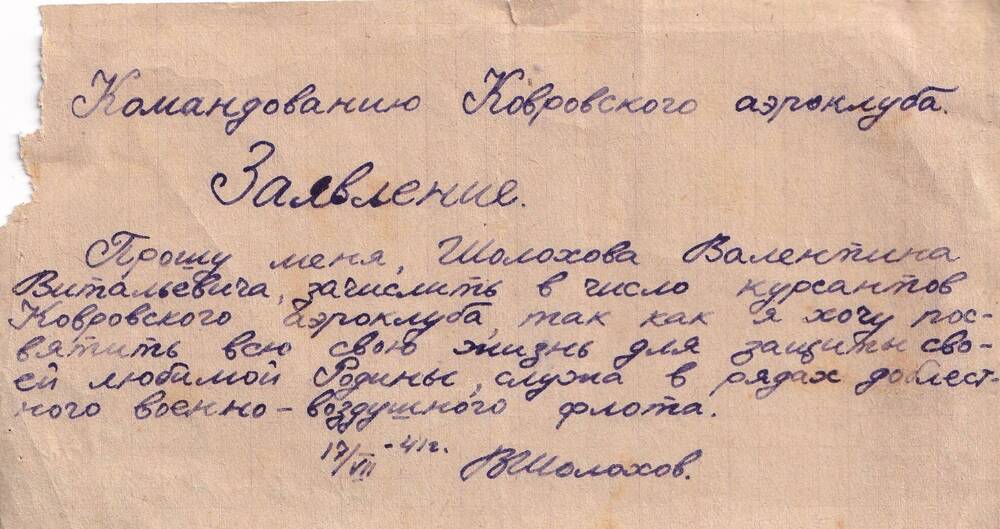 Командованию Ковровского аэроклуба.
Заявление.
Прошу меня, Шолохова Валентина
Витальевича, зачислить в число курсантов
Ковровского аэроклуба, так как я хочу пос-
вятить всю свою жизнь для защиты сво-
ей любимой Родины, служа в рядах доблест-
ного военно-воздушного флота.
17/VII -41г. ВШолохов.